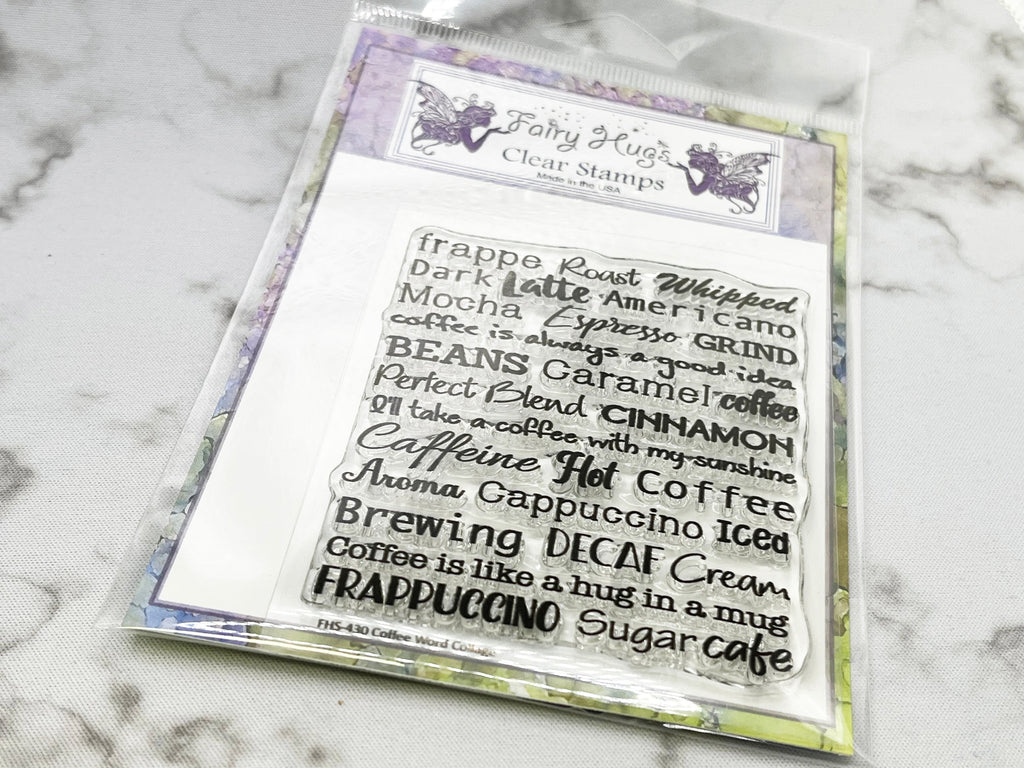 Fairy Hugs
Clear Stamps
Made in the USA
frappe Roast Whipped
Dark Latte Americano
Mocha Espresso GRIND
coffee is always a good idea
BEANS Caramel coffee
Perfect Blend CINNAMON
I'll take a coffee with my sunshine
Caffeine Hot Coffee
Aroma Cappuccino Iced
Brewing DECAF Cream
Coffee is like a hug in a mug
FRAPPUCCINO Sugar cafe
FHS-430 Coffee Word Collage